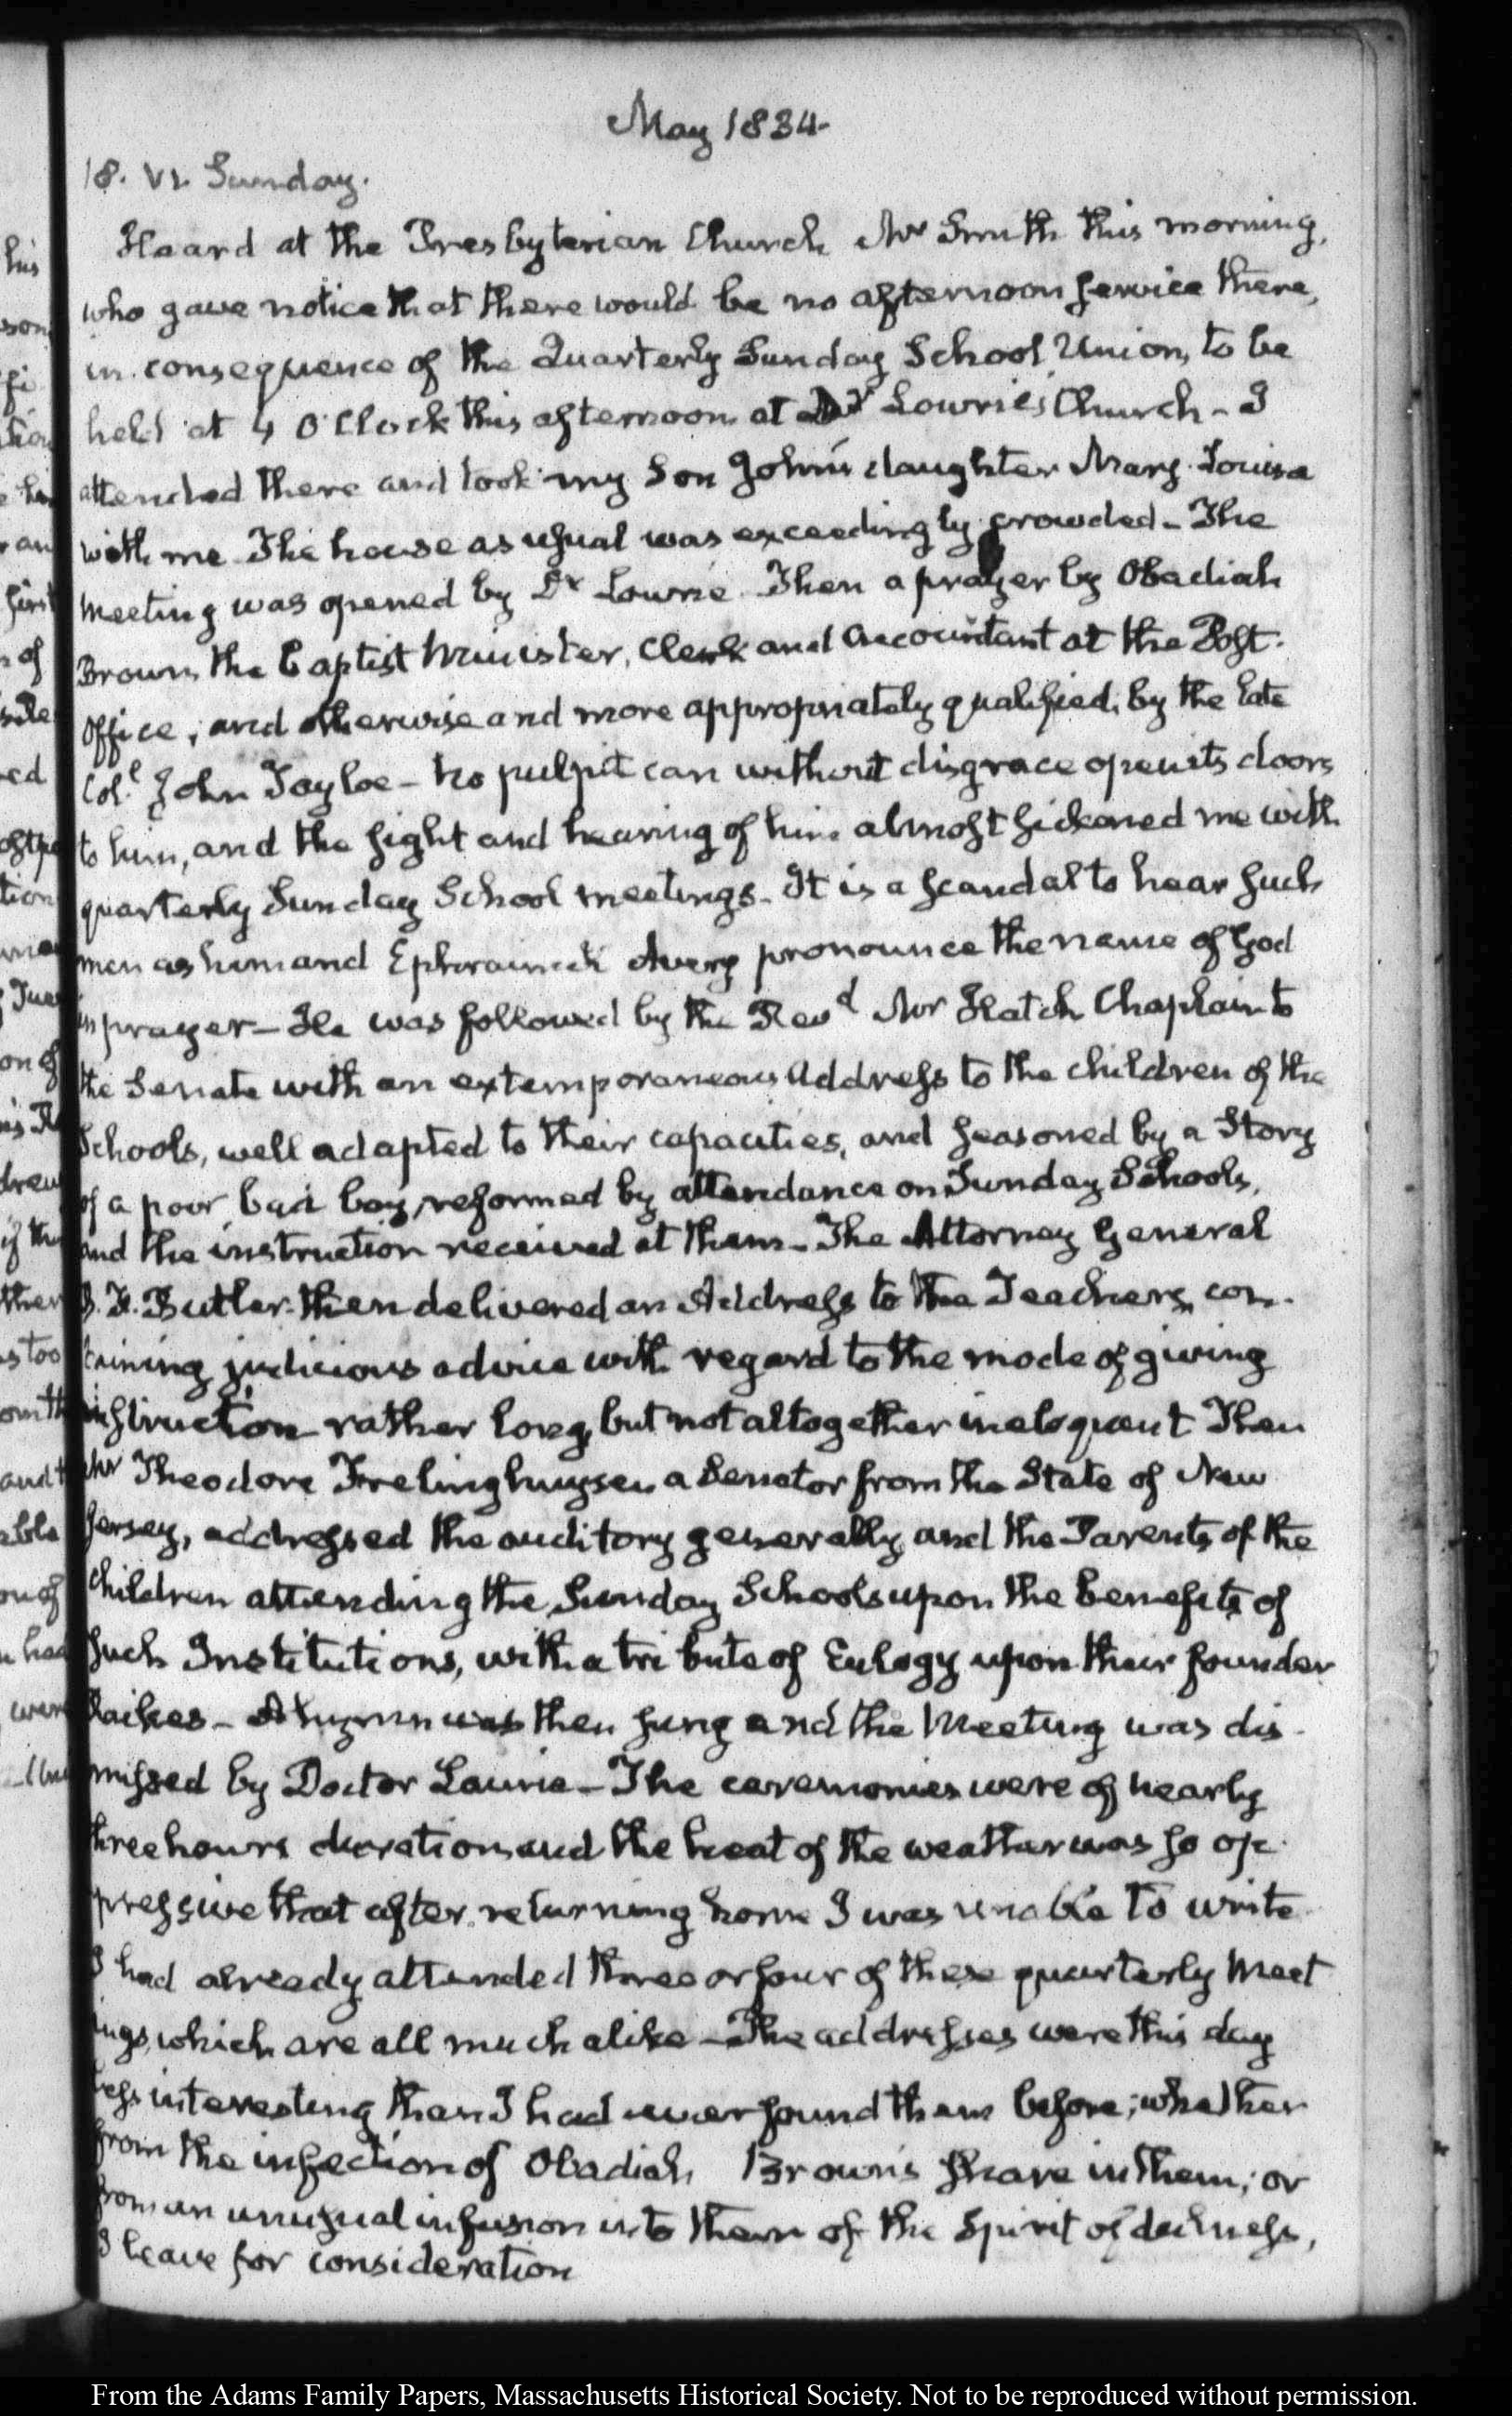 May 1834.
18. VI. Sunday.
Heard at the Presbyterian Church Mr Smith this morning,
who gave notice that there would be no afternoon service there,
in consequence of the Quarterly Sunday School Union, to be
held at 4 O'Clock this afternoon at Dr Lowrie's Church - I
attended there and took my Son John's daughter Mary Louisa
with me. The house as usual was exceedingly crowded - The
Meeting was opened by Dr Lowrie. Then a prayer by Obadiah
Brown, the Baptist Minister, Clerk and Accountant at the Post-
Office; and otherwise and more appropriately qualified, by the late
Coll John Tayloe - No pulpit can without disgrace open its doors
to him, and the sight and hearing of him almost sickened me with
quarterly Sunday School meetings - It is a scandal to hear such
men as him and Ephraim K Avery pronounce the name of God
in prayer - He was followed by the Revd Mr Hatch Chaplain to
the Senate with an extemporaneous Address to the children of the
Schools, well adapted to their capacities, and seasoned by a Story
of a poor bad boy, reformed by attendance on Sunday Schools,
and the instruction received at them - The Attorney General
B. F. Butler then delivered an Address to the Teachers, con-
taining judicious advice with regard to the mode of giving
instruction rather long, but not altogether ineloquent Then
Mr Theodore Frelinghuysen a Senator from the State of New
Jersey, addressed the auditory generally, and the Parents of the
children attending the Sunday Schools upon the benefits of
such Institutions, with a tribute of Eulogy upon their founder
Raikes - A hymn was then sung and the Meeting was dis-
missed by Doctor Laurie - The ceremonies were of nearly
three hours duration and the heat of the weather was so op-
pressive that after returning home I was unable to write
I had already attended three or four of these quarterly Meet
ings, which are all much alike - The addresses were this day
less interesting than I had ever found them before; whether
from the infection of Obadiah Brown's share in them; or
from an unusual infusion into them of the Spirit of dullness,
I leave for consideration
From the Adams Family Papers, Massachusetts Historical Society. Not to be reproduced without permission.